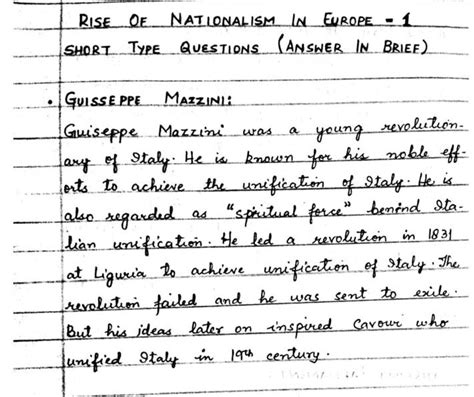 RISE OF NATIONALISM IN EUROPE - 1
SHORT TYPE QUESTIONS (ANSWER IN BRIEF)
• GUISSEPPE MAZZINI:
Guiseppe Mazzini was a young revolution-
ary of Italy. He is known for his noble eff-
orts to achieve the unification of Italy. He is
also regarded as "spritual force" benind Ita-
lian unification. He led a revolution in 1831
at Liguria to achieve unification of Italy. The
revolution failed and he was sent to exile.
But his ideas later on inspired Cavour who
unified Italy in 19th century.